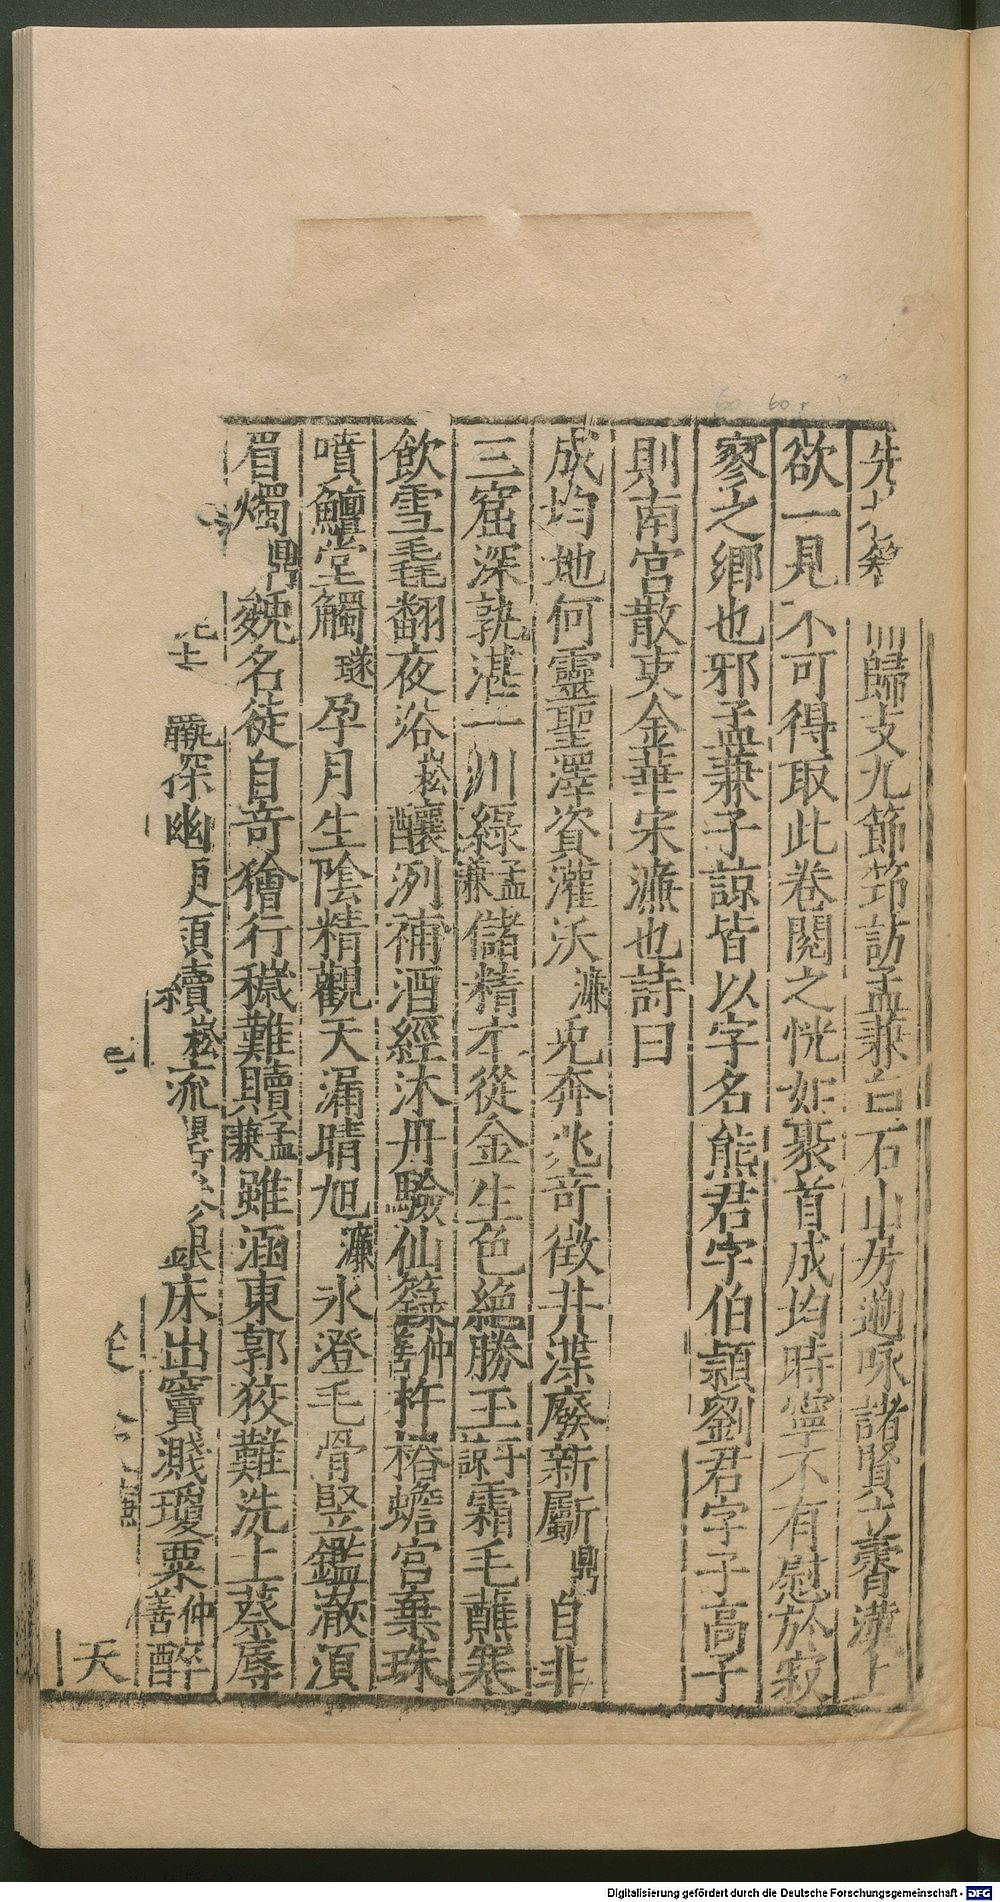 歸支九節笻訪孟兼白石山房遍咏諸賢立膏漢上
欲一見不可得取此卷閱之恍如聚首成均時寧不有慰於寂
寥之鄉也邪孟兼子諒皆以字名熊君字伯頴劉君字子高子
則南宫散吏金華宋濂也詩曰
成均地何靈聖澤資灌沃濂兎奔兆竒徵井渫廢新斸鼎自非
三窟深孰湛一川綠孟兼儲精本從金生色絶勝玉子諒霜毛蘸寒
飲雪毳翻夜浴崧釀洌補酒經沐丹驗仙籙仲善杵樁蟾宫棄珠
噴鱣堂觸璲孕月生陰精觀天漏晴旭濂氷澄毛骨竪鑑澈湏
眉燭鼎䫥名徒自竒獪行穢難贖孟兼雖涵東郭狡難洗上蔡辱
探幽更須續崧流銀床出竇濺瓊粟仲善醉
天
Digitalisierung gefördert durch die Deutsche Forschungsgemeinschaft - DFG